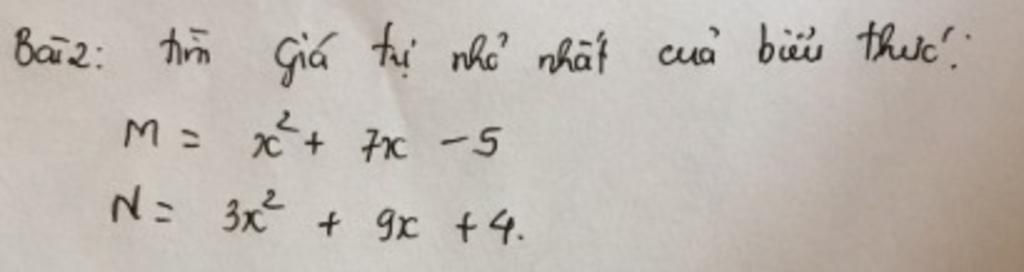 Bài 2: tìm giá trị nhỏ nhất của biểu thức:
M = x² + 7x - 5
N = 3x² + 9x + 4.